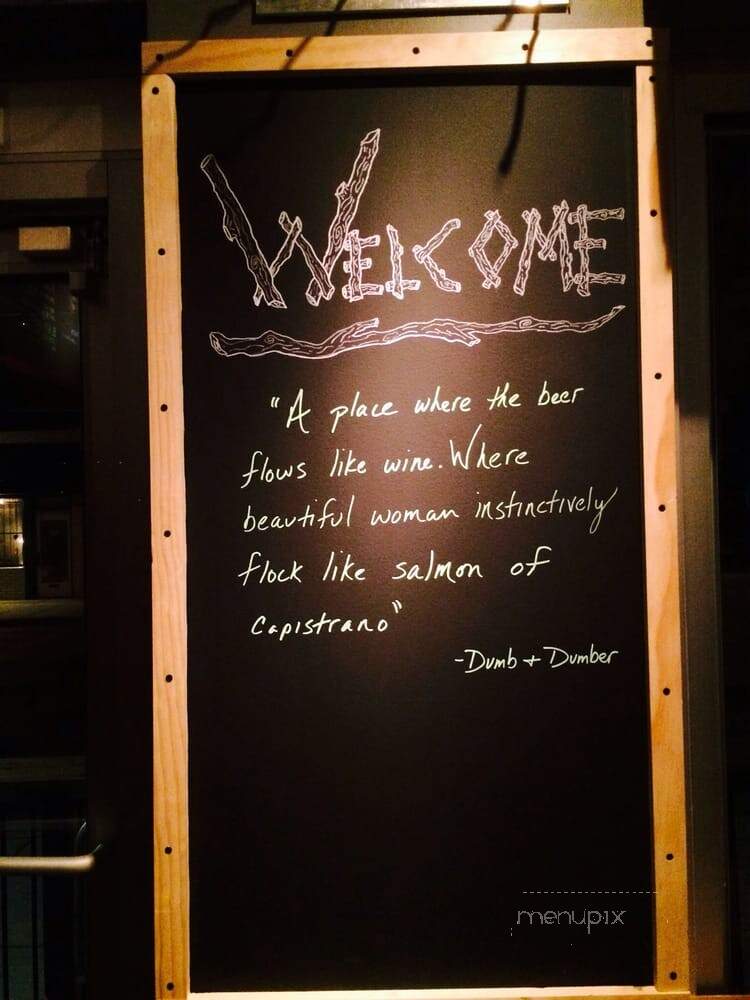 WELCOME
"A place where the beer
flows like wine. Where
beautiful woman instinctively
flock like salmon of
Capistrano"
-Dumb + Dumber
menupix